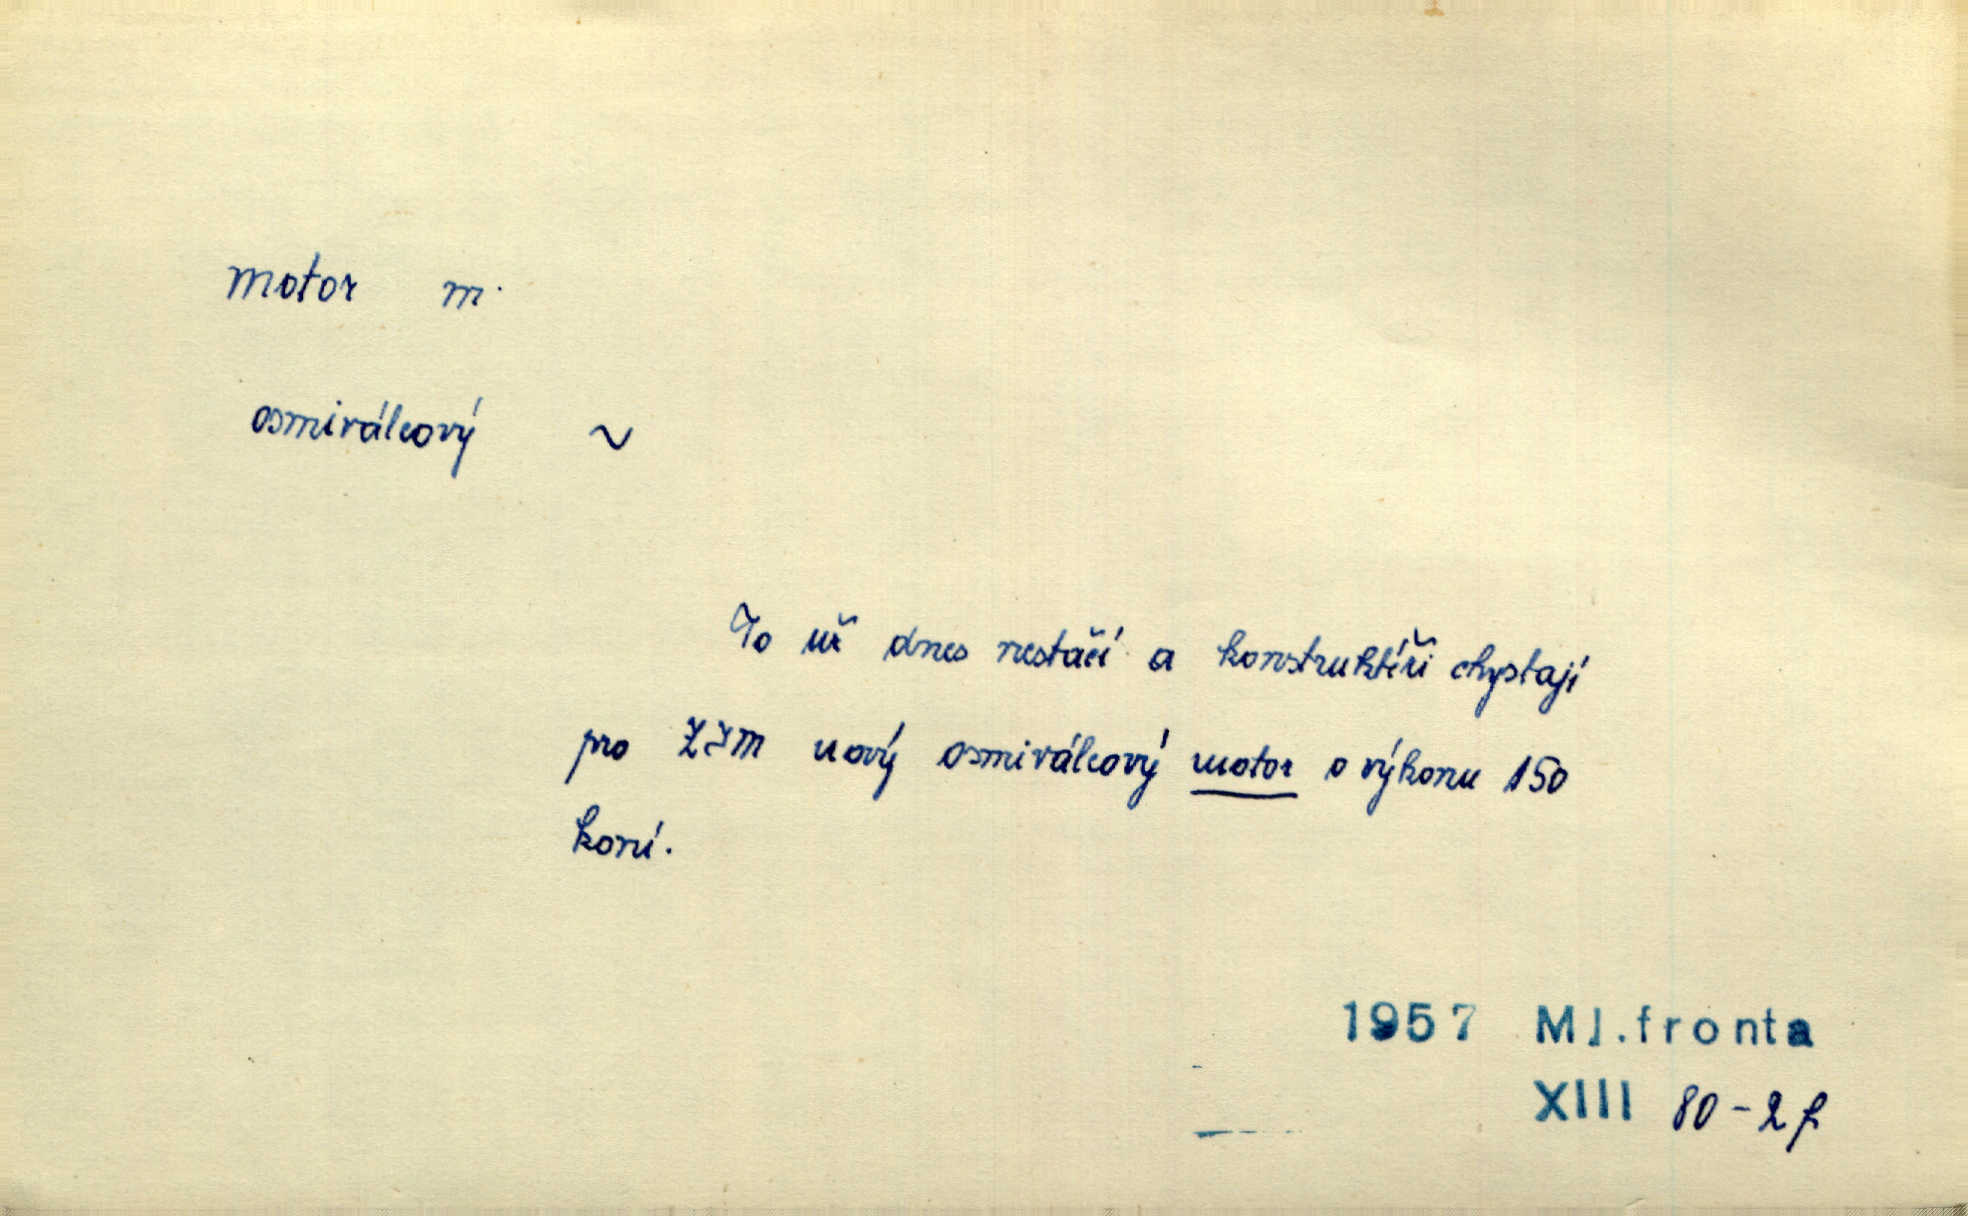 motor m.
osmiválcový ~
To už dnes nestačí a konstruktéři chystají
pro ZIM nový osmiválcový motor o výkonu 150
koní.
1957 Ml.fronta
XIII 80-2